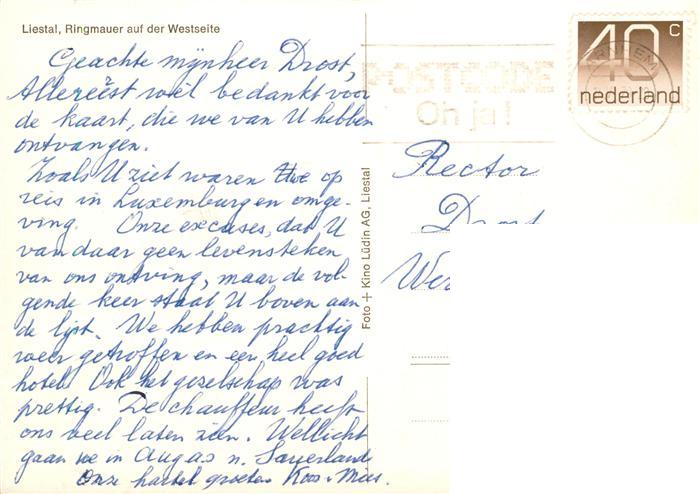 Liestal, Ringmauer auf der Westseite
Geachte mijnheer Drost,
Allereerst wel bedankt voor
de kaart, die we van U hebben
ontvangen.
Zoals U ziet waren we op
reis in Luxemburg en omge-
ving. Onze excuses, dat U
van daar geen levensteken
van ons ontving, maar de vol-
gende keer staat U boven aan
de lijst. We hebben prachtig
weer getroffen en een heel goed
hotel. Ook het gezelschap was
prettig. De chauffeur heeft
ons veel laten zien. Wellicht
gaan we in Aug. n. Sauerland
Onze hartel groeten Koos + Mies.
Foto + Kino Lüdin AG, Liestal
POSTCODE
Oh ja!
40 c
nederland
Rector